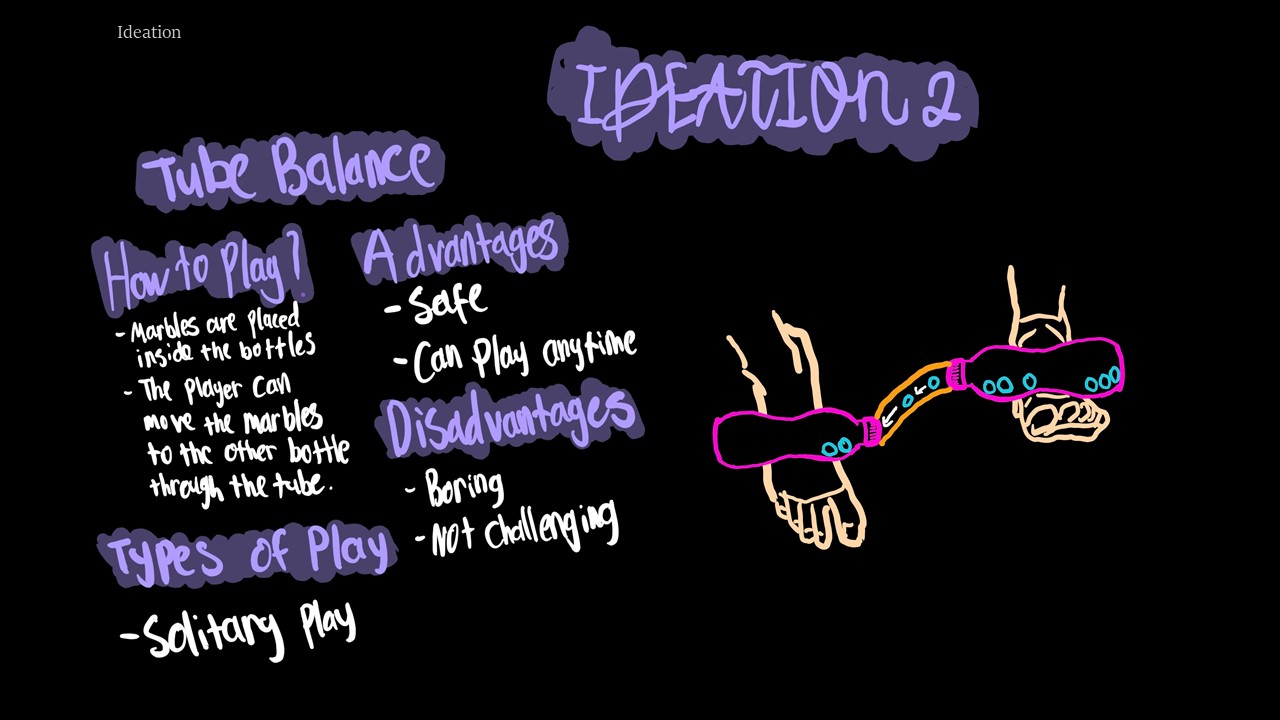 Ideation
IDEATION 2
Tube Balance
How to Play?
- Marbles are placed
inside the bottles
- The player can
move the marbles
to the other bottle
through the tube.
Types of Play
- Solitary Play
Advantages
- Safe
- Can Play anytime
Disadvantages
- Boring
- Not challenging